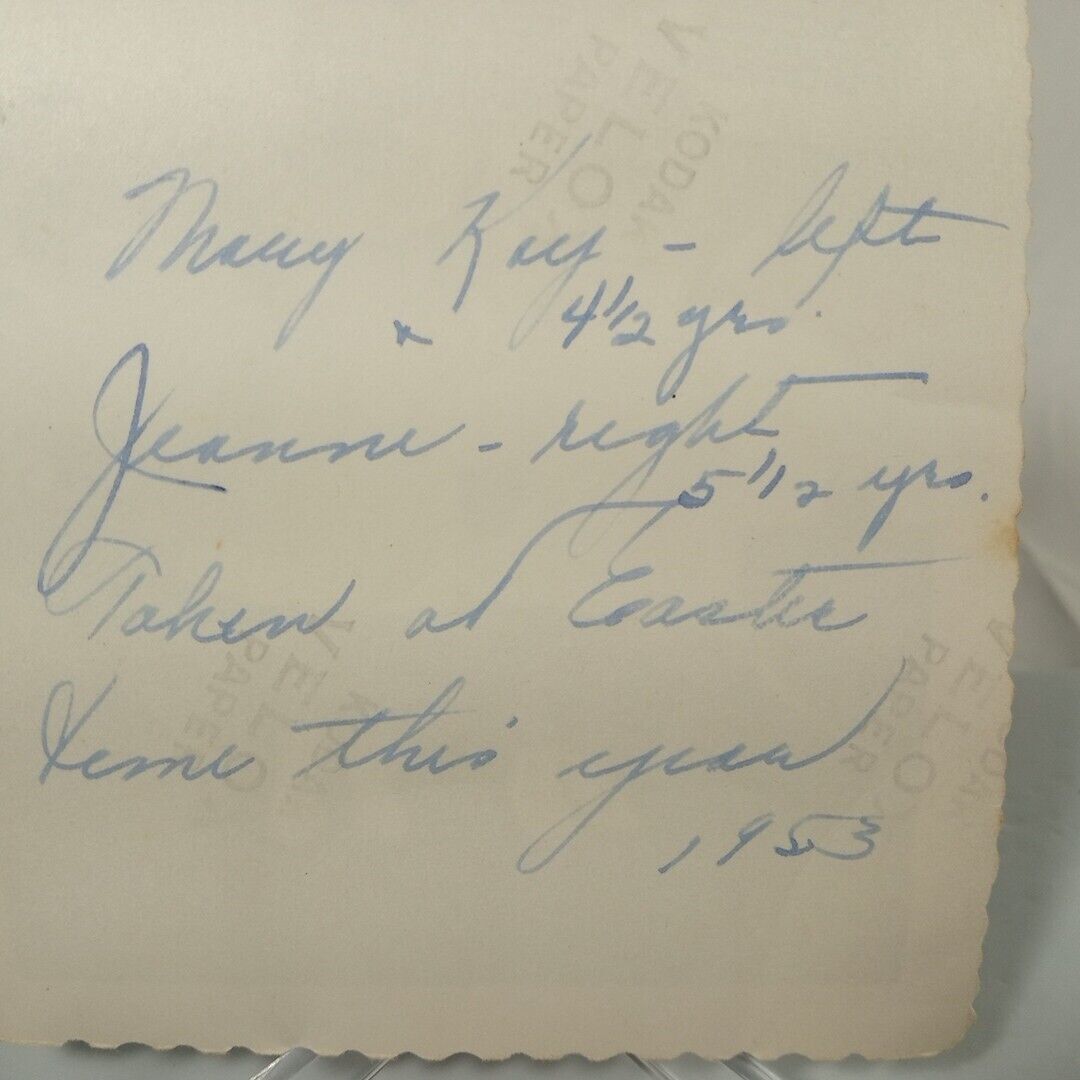 KODAK
VELOX
PAPER
Mary Kay - left
& 4 1/2 yrs.
Jeanne - right
5 1/2 yrs.
Taken at Easter
time this year
1953
VELOX
PAPER
KODAK
VELOX
PAPER